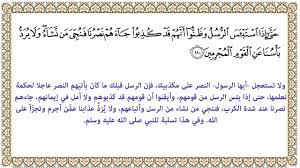 حَتَّىٰٓ إِذَا ٱسْتَيْـَٔسَ ٱلرُّسُلُ وَظَنُّوٓا۟ أَنَّهُمْ قَدْ كُذِبُوا۟ جَآءَهُمْ نَصْرُنَا فَنُجِّىَ مَن نَّشَآءُ ۖ وَلَا يُرَدُّ
بَأْسُنَا عَنِ ٱلْقَوْمِ ٱلْمُجْرِمِينَ ﴿١١٠﴾
ولا تستعجل -أيها الرسول- النصر على مكذبيك، فإن الرسل قبلك ما كان يأتيهم النصر عاجلا لحكمة
نعلمها، حتى إذا يئس الرسل من قومهم، وأيقنوا أن قومهم قد كذبوهم ولا أمل في إيمانهم، جاءهم
نصرنا عند شدة الكرب، فننجي من نشاء من الرسل وأتباعهم، ولا يُرَدُّ عذابنا عمَّن أجرم وتجرَّأ على
الله. وفي هذا تسلية للنبي صلى الله عليه وسلم.